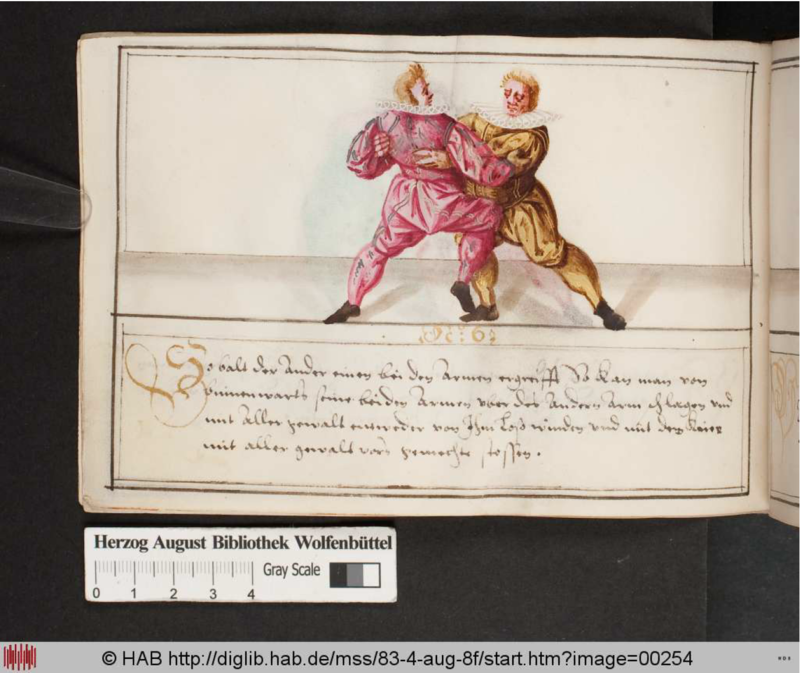 No: 6:
So balt der Ander einen bei den Armen ergreifft So kan man von
binnenwarts seine beiden Armen uber des Andern Arm schlagen und
mit Aller gewalt entweder von Ihm loß winden und mit der Knie
mit aller gewalt vors gemechte stossen.
Herzog August Bibliothek Wolfenbüttel
Gray Scale
0 1 2 3 4
© HAB http://diglib.hab.de/mss/83-4-aug-8f/start.htm?image=00254